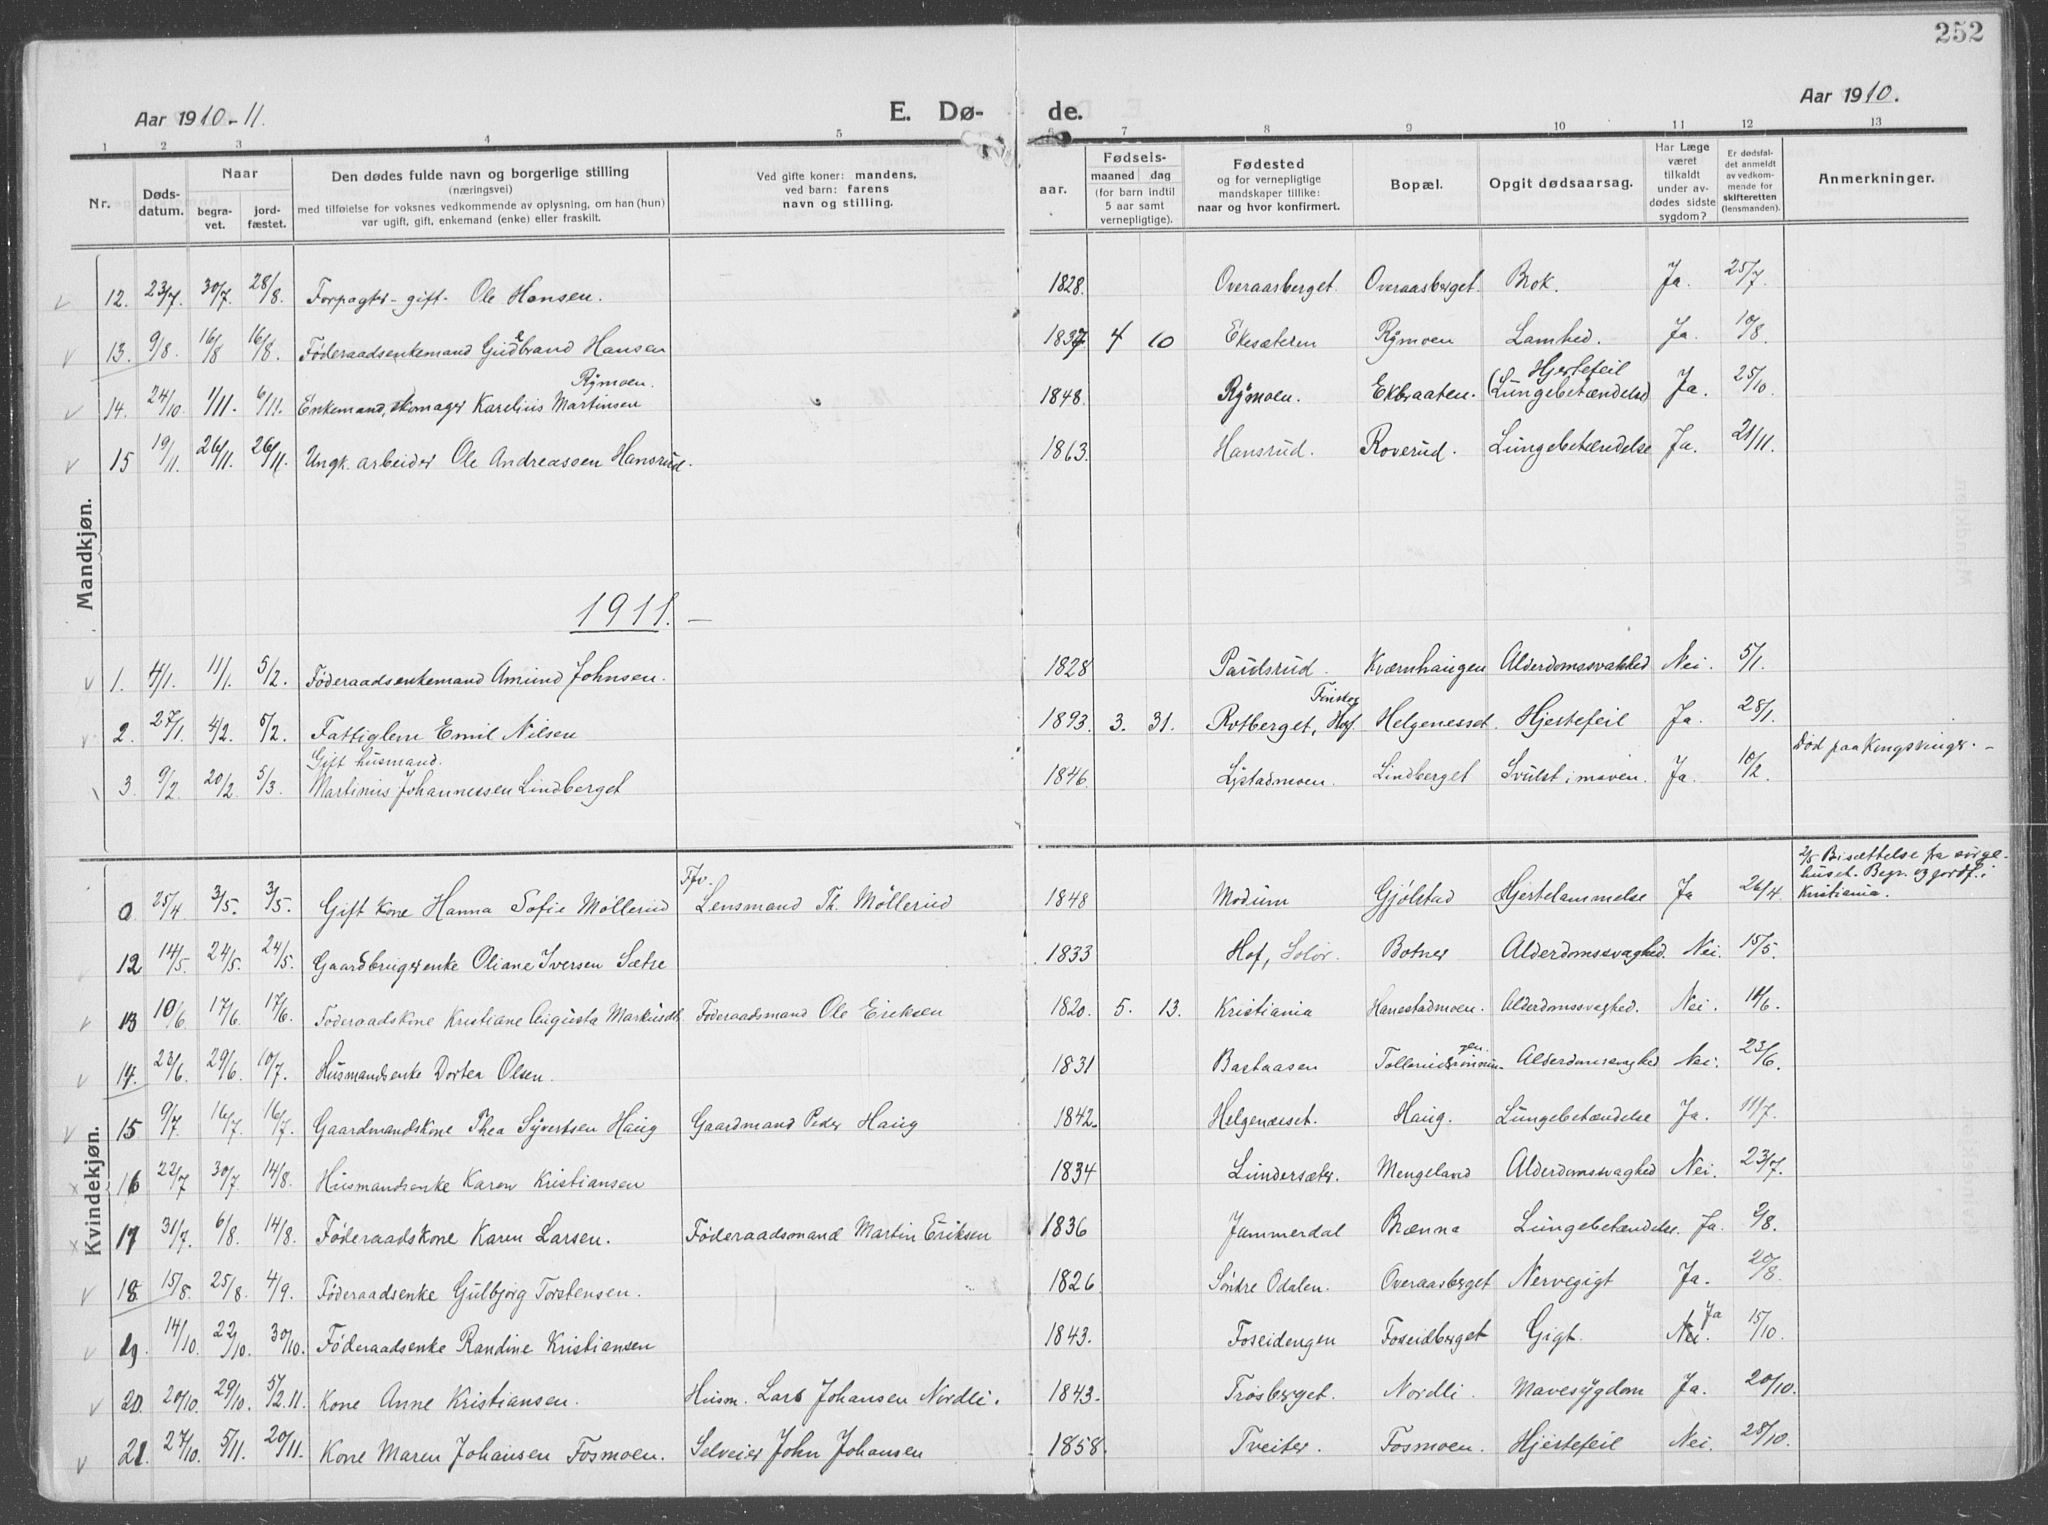 252
Aar 1910-11.
E. Dø-
de.
Aar 1910.
1 2 3 4 5 6 7 8 9 10 11 12 13
Nr.
Døds-
datum.
Naar
begra-
vet.
jord-
fæstet.
Den dødes fulde navn og borgerlige stilling
(næringsvei)
med tilføielse for voksnes vedkommende av oplysning, om han (hun)
var ugift, gift, enkemand (enke) eller fraskilt.
Ved gifte koner: mandens,
ved barn: farens
navn og stilling.
aar.
Fødsels-
maaned dag
(for barn indtil
5 aar samt
vernepligtige).
Fødested
og for vernepligtige
mandskaper tillike:
naar og hvor konfirmert.
Bopæl.
Opgit dødsaarsag.
Har Læge
været
tilkaldt
under av-
dødes sidste
sygdom?
Er dødsfal-
det anmeldt
av vedkom-
mende for
skifteretten
(lensmanden).
Anmerkninger.
Mandkjøn.
12. 23/7. 30/7. 28/8. Forpagter - gift - Ole Hansen. 1828. Overaasberget. Overaasberget. Brok. Ja. 25/7.
13. 9/8. 16/8 16/8. Føderaadsenkemand Gudbrand Hansen 1837 4 10 Ekesæteren Rymoen Lamhed. Ja. 10/8.
Rymoen. Hjertefeil
14. 24/10. 1/11. 6/11. Enkemand, skomager Karelius Martinsen 1848. Rymoen. Ekbraaten. (Lungebetændelse) Ja. 25/10.
15 19/11. 26/11. 26/11. Ungk. arbeider Ole Andreassen Hansrud. 1863. Hansrud. Roverud. Lungebetændelse Ja. 21/11.
1911. —
1. 4/1. 11/1. 5/2. Føderaadsenkemand Amund Johnsen. 1828 Paulsrud. Kværnhaugen Alderdomssvakhed Nei. 5/1.
Finskog
2. 27/1. 4/2. 5/2. Fattiglem Emil Nilsen 1893 3. 31. Rotberget, Hof. Helgenesset. Hjertefeil Ja. 28/1.
Gift husmand. Død paa Kongsvinger. —
3. 9/2. 20/2. 5/3. Martinius Johannessen Lindberget 1846. Lystadmoen. Lindberget Svulst i maven. Ja. 10/2.
Kvindekjøn.
Ffv. 2/5 Bisættelse fra sørge-
huset. Begr. og jordf. i
25/4 3/5. 3/5. Gift kone Hanna Sofie Møllerud Lensmand Th. Møllerud 1848 Modum Gjølstad Hjertelammelse Ja 26/4. Kristiania.
12 14/5. 24/5. 24/5. Gaardbrugerenke Oliane Iversen Sætre 1833 Hof, Solør. Botner Alderdomssvaghed. Nei. 15/5.
13 10/6 17/6. 17/6. Føderaadskone Kristiane Augusta Markusdt. Føderaadsmand Ole Eriksen 1820. 5. 13. Kristiania Hanestadmoen. Alderdomssvaghed. Nei. 14/6.
14. 23/6. 29/6 10/7. Husmandsenke Dortea Olsen. 1831 Bastaasen Alderdomssvaghed Nei. 23/6.
15 9/7. 16/7. 16/7. Gaardmandskone Thea Syvertsen Haug Gaardmand Peder Haug 1842. Helgenesset. Haug. Lungebetændelse Ja. 11/7.
16 22/7 30/7. 14/8. Husmandsenke Karen Kristiansen 1834 Lundersæter. Mengeland Alderdomssvaghed Nei. 23/7.
17 31/7. 6/8. 14/8. Føderaadskone Karen Larsen. Føderaadsmand Martin Eriksen 1836 Jammerdal Brænna Lungebetændelse. Ja. 2/8.
18. 15/8. 25/8. 4/9. Føderaadsenke Gulbjørg Torstensen. 1826 Søndre Odalen. Overaasberget Nervegigt Ja. 20/8.
19. 14/10. 22/10. 30/10. Føderaadsenke Randine Kristiansen 1843. Foseidengen Foseidberget Gigt. Nei. Ja 15/10.
20. 20/10. 29/10. 5/2. 11. Kone Anne Kristiansen. Husm. Lars Johansen Nordli. 1843. Trøsberget. Nordli. Mavesygdom Ja. 20/10.
21. 27/10. 5/11. 20/11. Kone Maren Johansen Fosmoen. Selveier John Johansen 1858. Tveiter. Fosmoen. Hjertefeil Nei. 28/10.